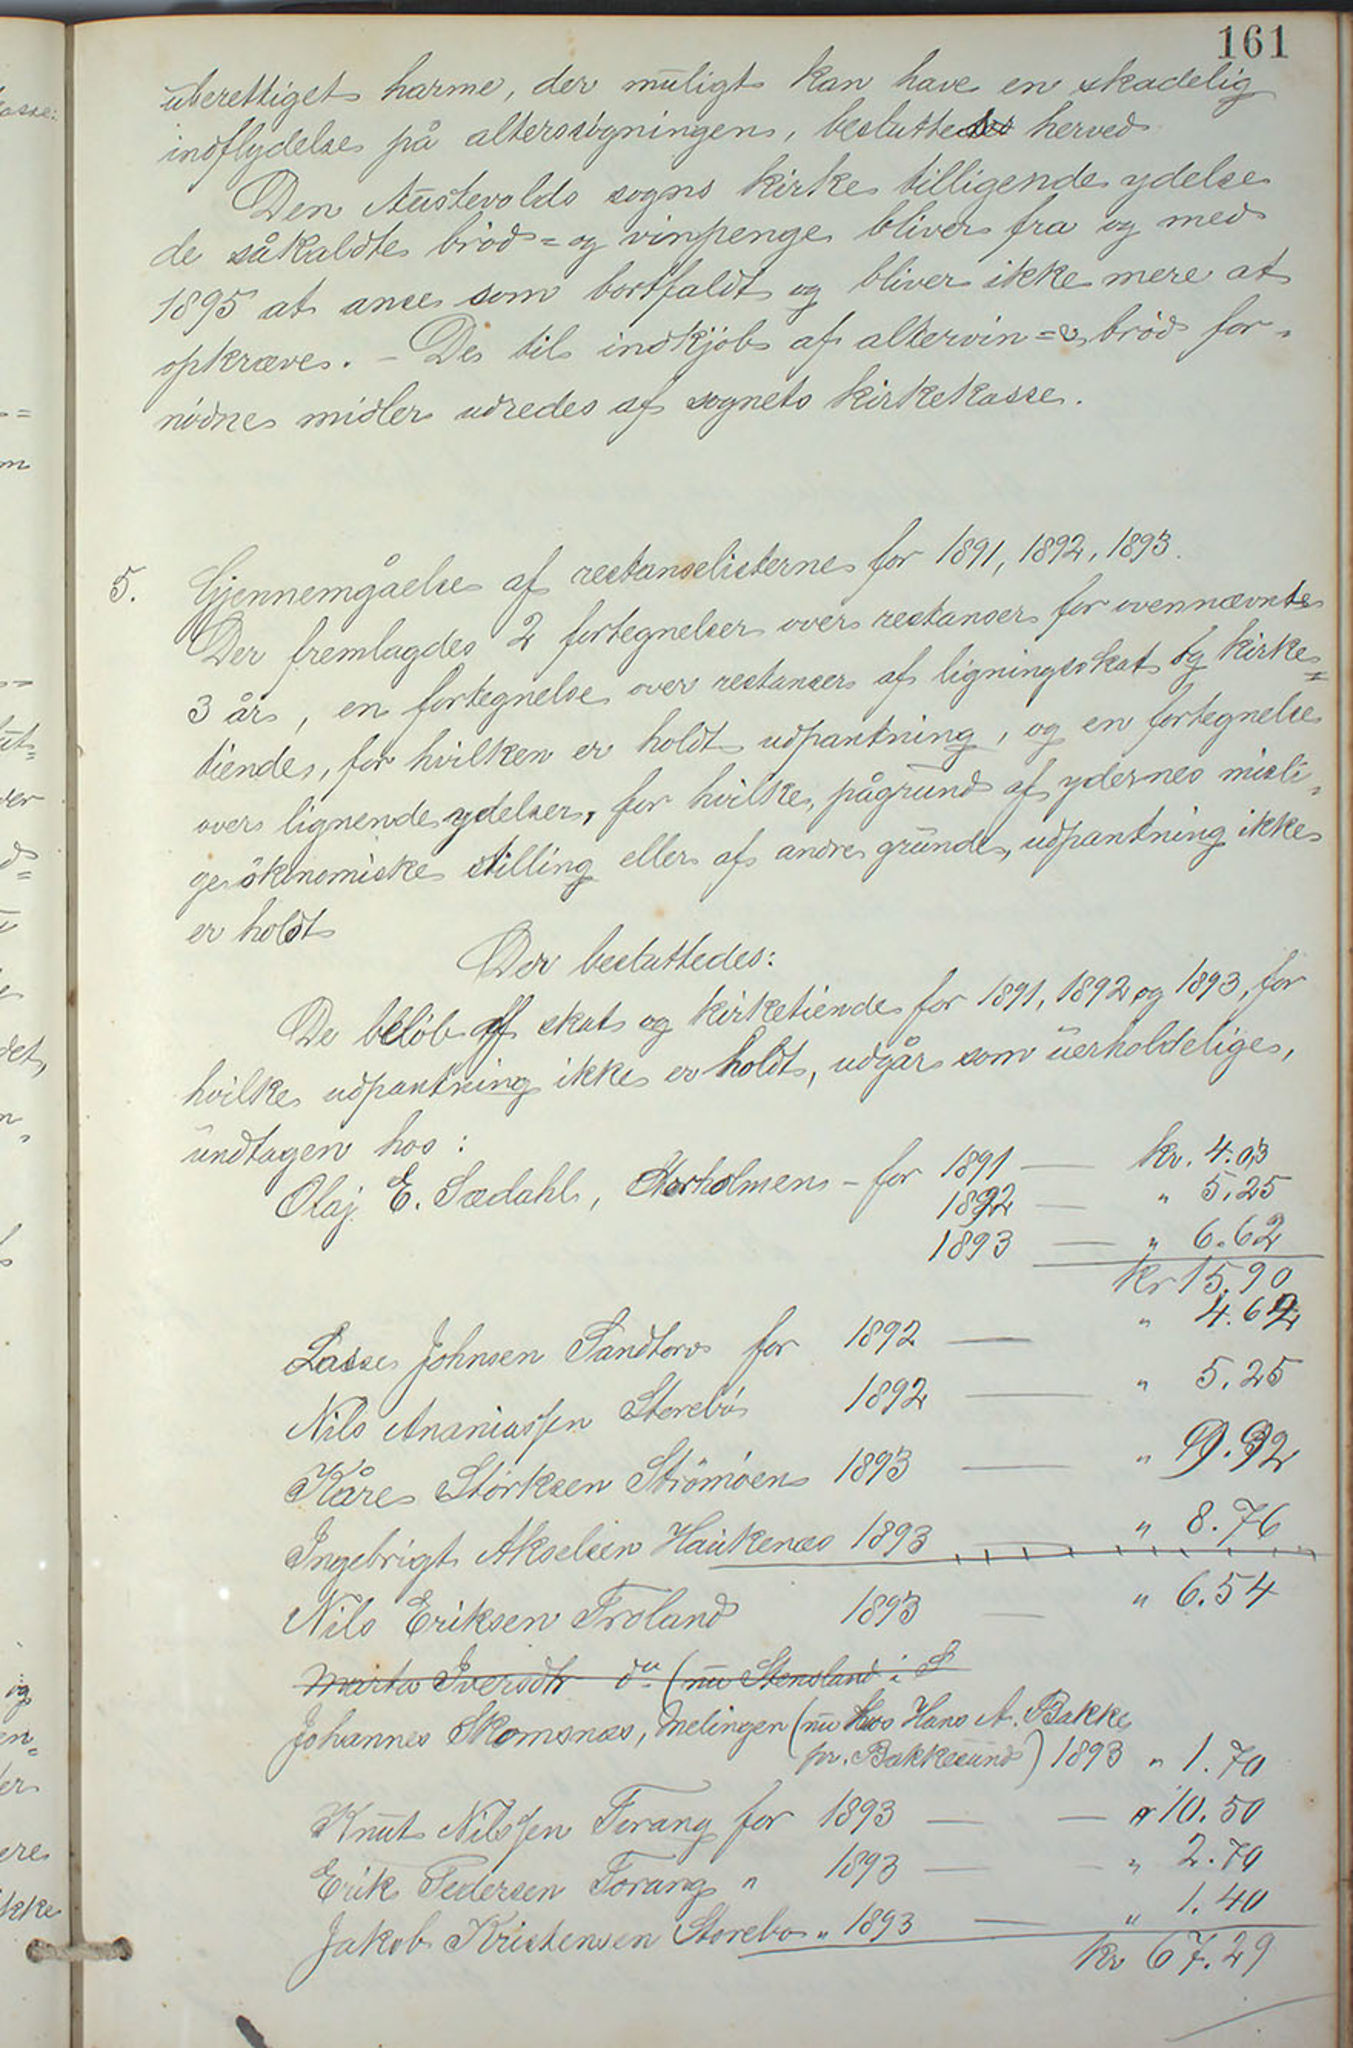 161
uberettiget harme, der muligt kan have en skadelig
indflydelse på alterssøgningen, besluttedes herved
Den Austevolds sogns kirke tilligende ydelse
de såkaldte brød= og vinpenge bliver fra og med
1895 at anse som bortfaldt og bliver ikke mere at
opkræve. – De til indkjøb af altervin = & brød for-
nødne midler udredes af sognets kirkekasse.
5. Gjennemgåelse af restanselisterne for 1891, 1892, 1893.
Der fremlagdes 2 fortegnelser over restanser for ovennævnte
3 år, en fortegnelse over restanser af ligningsskat og kirke=
tiende, for hvilken er holdt udpantning, og en fortegnelse
over lignende ydelser, for hvilke, pågrund af ydernes misli-
ge økonomiske stilling eller af andre grunde, udpantning ikke
er holdt
Der besluttedes:
De beløb af skat og kirketiende for 1891, 1892 og 1893, for
hvilke udpantning ikke er holdt, udgår som uerholdelige,
undtagen hos:
Olaj E. Sædahl, Storholmen – for 1891 — kr. 4.03
1892 — " 5.25
1893 — " 6.62
kr 15.90
Lasse Johnsen Sandtorv for 1892 — " 4.62
Nils Ananiassen Storebø 1892 — " 5.25
Kåre Størksen Strömöen 1893 — " 9.92
Ingebrigt Akselsen Haukenæs 1893 — " 8.76
Nils Eriksen Troland 1893 — " 6.54
Marta Iversdtr do (nu Stensland i S
Johannes Skomsnæs, Melingen (nu hos Hans A. Bakke
pr. Bakkesund) 1893 " 1.70
Knut Nilssen Torang for 1893 — — " 10.50
Erik Pedersen Torang " 1893 — " 2.70
Jakob Kristensen Storebø " 1893 — " 1.40
kr 67.29